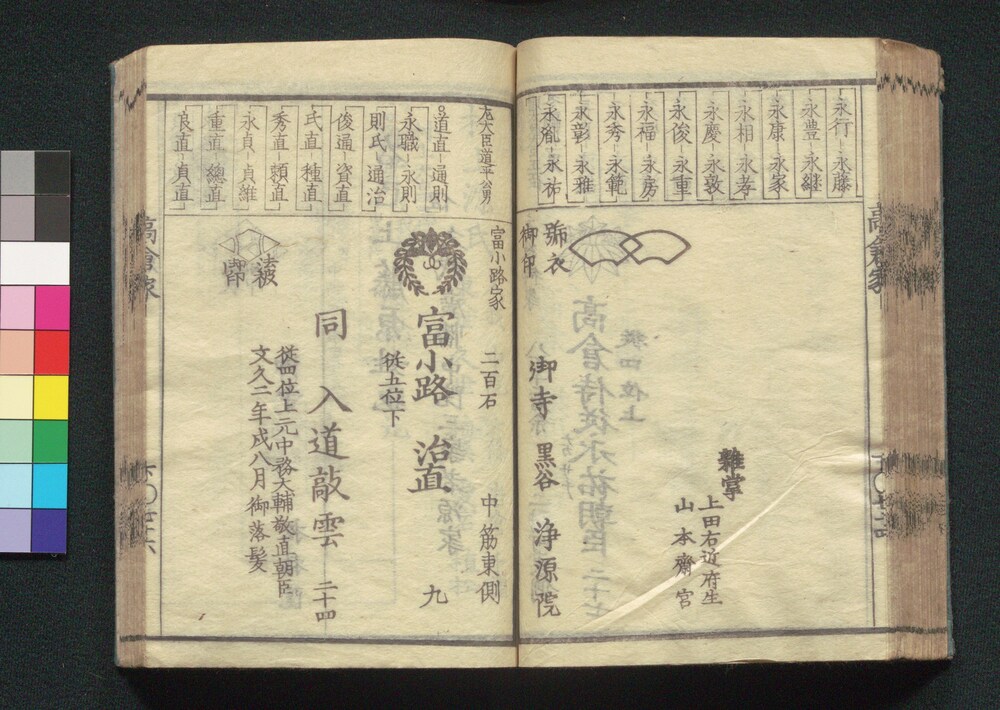 高倉家
永行 永藤
永豊 永継
永康 永家
永相 永孝
永慶 永敦
永俊 永重
永福 永房
永秀 永範
永彰 永雅
永胤 永祐
雑掌
上田右近府生
山本齋宮
號衣
御印
御寺 黒谷 浄源院
左大臣道平公男
道直 通則
永職 永則
則氏 通治
俊通 資直
氏直 種直
秀直 頼直
永貞 貞維
重直 總直
良直 貞直
富小路家 二百石 中筋東側
富小路 治直 九
従五位下
同 入道敲雲 二十四
従四位上元中務大輔敬直朝臣
文久二年戌八月御落髪
法被
印
高倉家